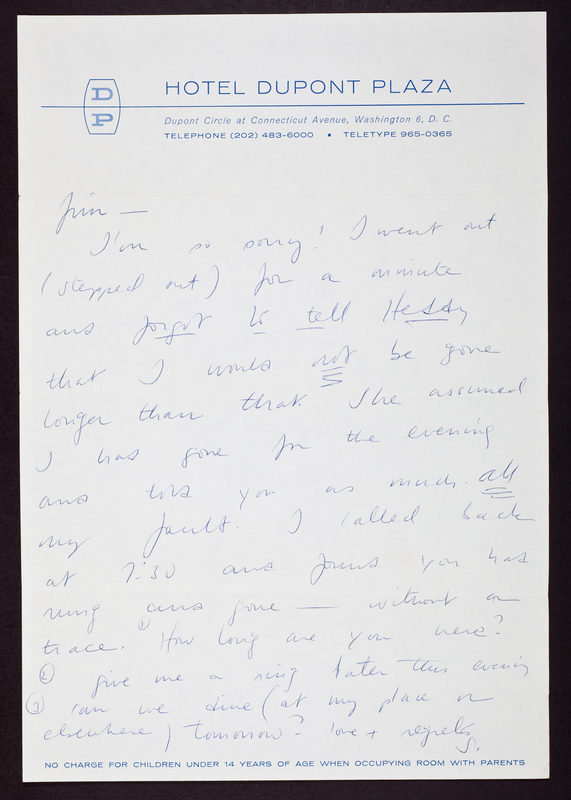 HOTEL DUPONT PLAZA
DP
Dupont Circle at Connecticut Avenue, Washington 6, D. C.
TELEPHONE (202) 483-6000 • TELETYPE 965-0365
Jim —
I'm so sorry! I went out
(stepped out) for a minute
and forgot to tell Hessy
that I would not be gone
longer than that. She assumed
I had gone for the evening
and told you as much. all
my fault. I called back
at 7:30 and found you had
rung and gone — without a
trace. ① How long are you here?
② give me a ring later this evening
③ can we dine (at my place or
elsewhere) tomorrow? love + regrets,
S.
NO CHARGE FOR CHILDREN UNDER 14 YEARS OF AGE WHEN OCCUPYING ROOM WITH PARENTS